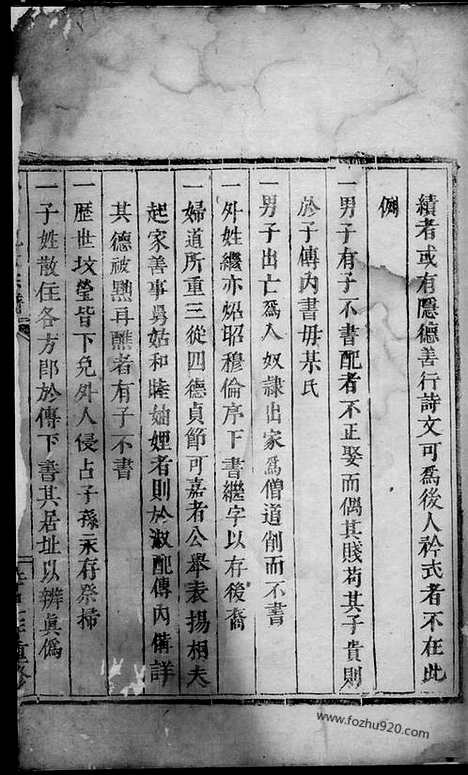 績者或有隱德善行詩文可爲後人衿式者不在此
例
一男子有子不書配者不正娶而偶其賤苟其子貴則
於子傳內書毋某氏
一男子出亡爲人奴隸出家爲僧道削而不書
一外姓繼亦炤昭穆倫序下書繼字以存後裔
一婦道所重三從四德貞節可嘉者公舉表揚相夫
起家善事舅姑和睦妯娌者則於淑配傳內備詳
其德被黜再醮者有子不書
一歷世坟瑩皆下免外人侵占子孫永存祭掃
一子姓散住各方郎於傳下書其居址以辨眞僞
www.fozhu920.com